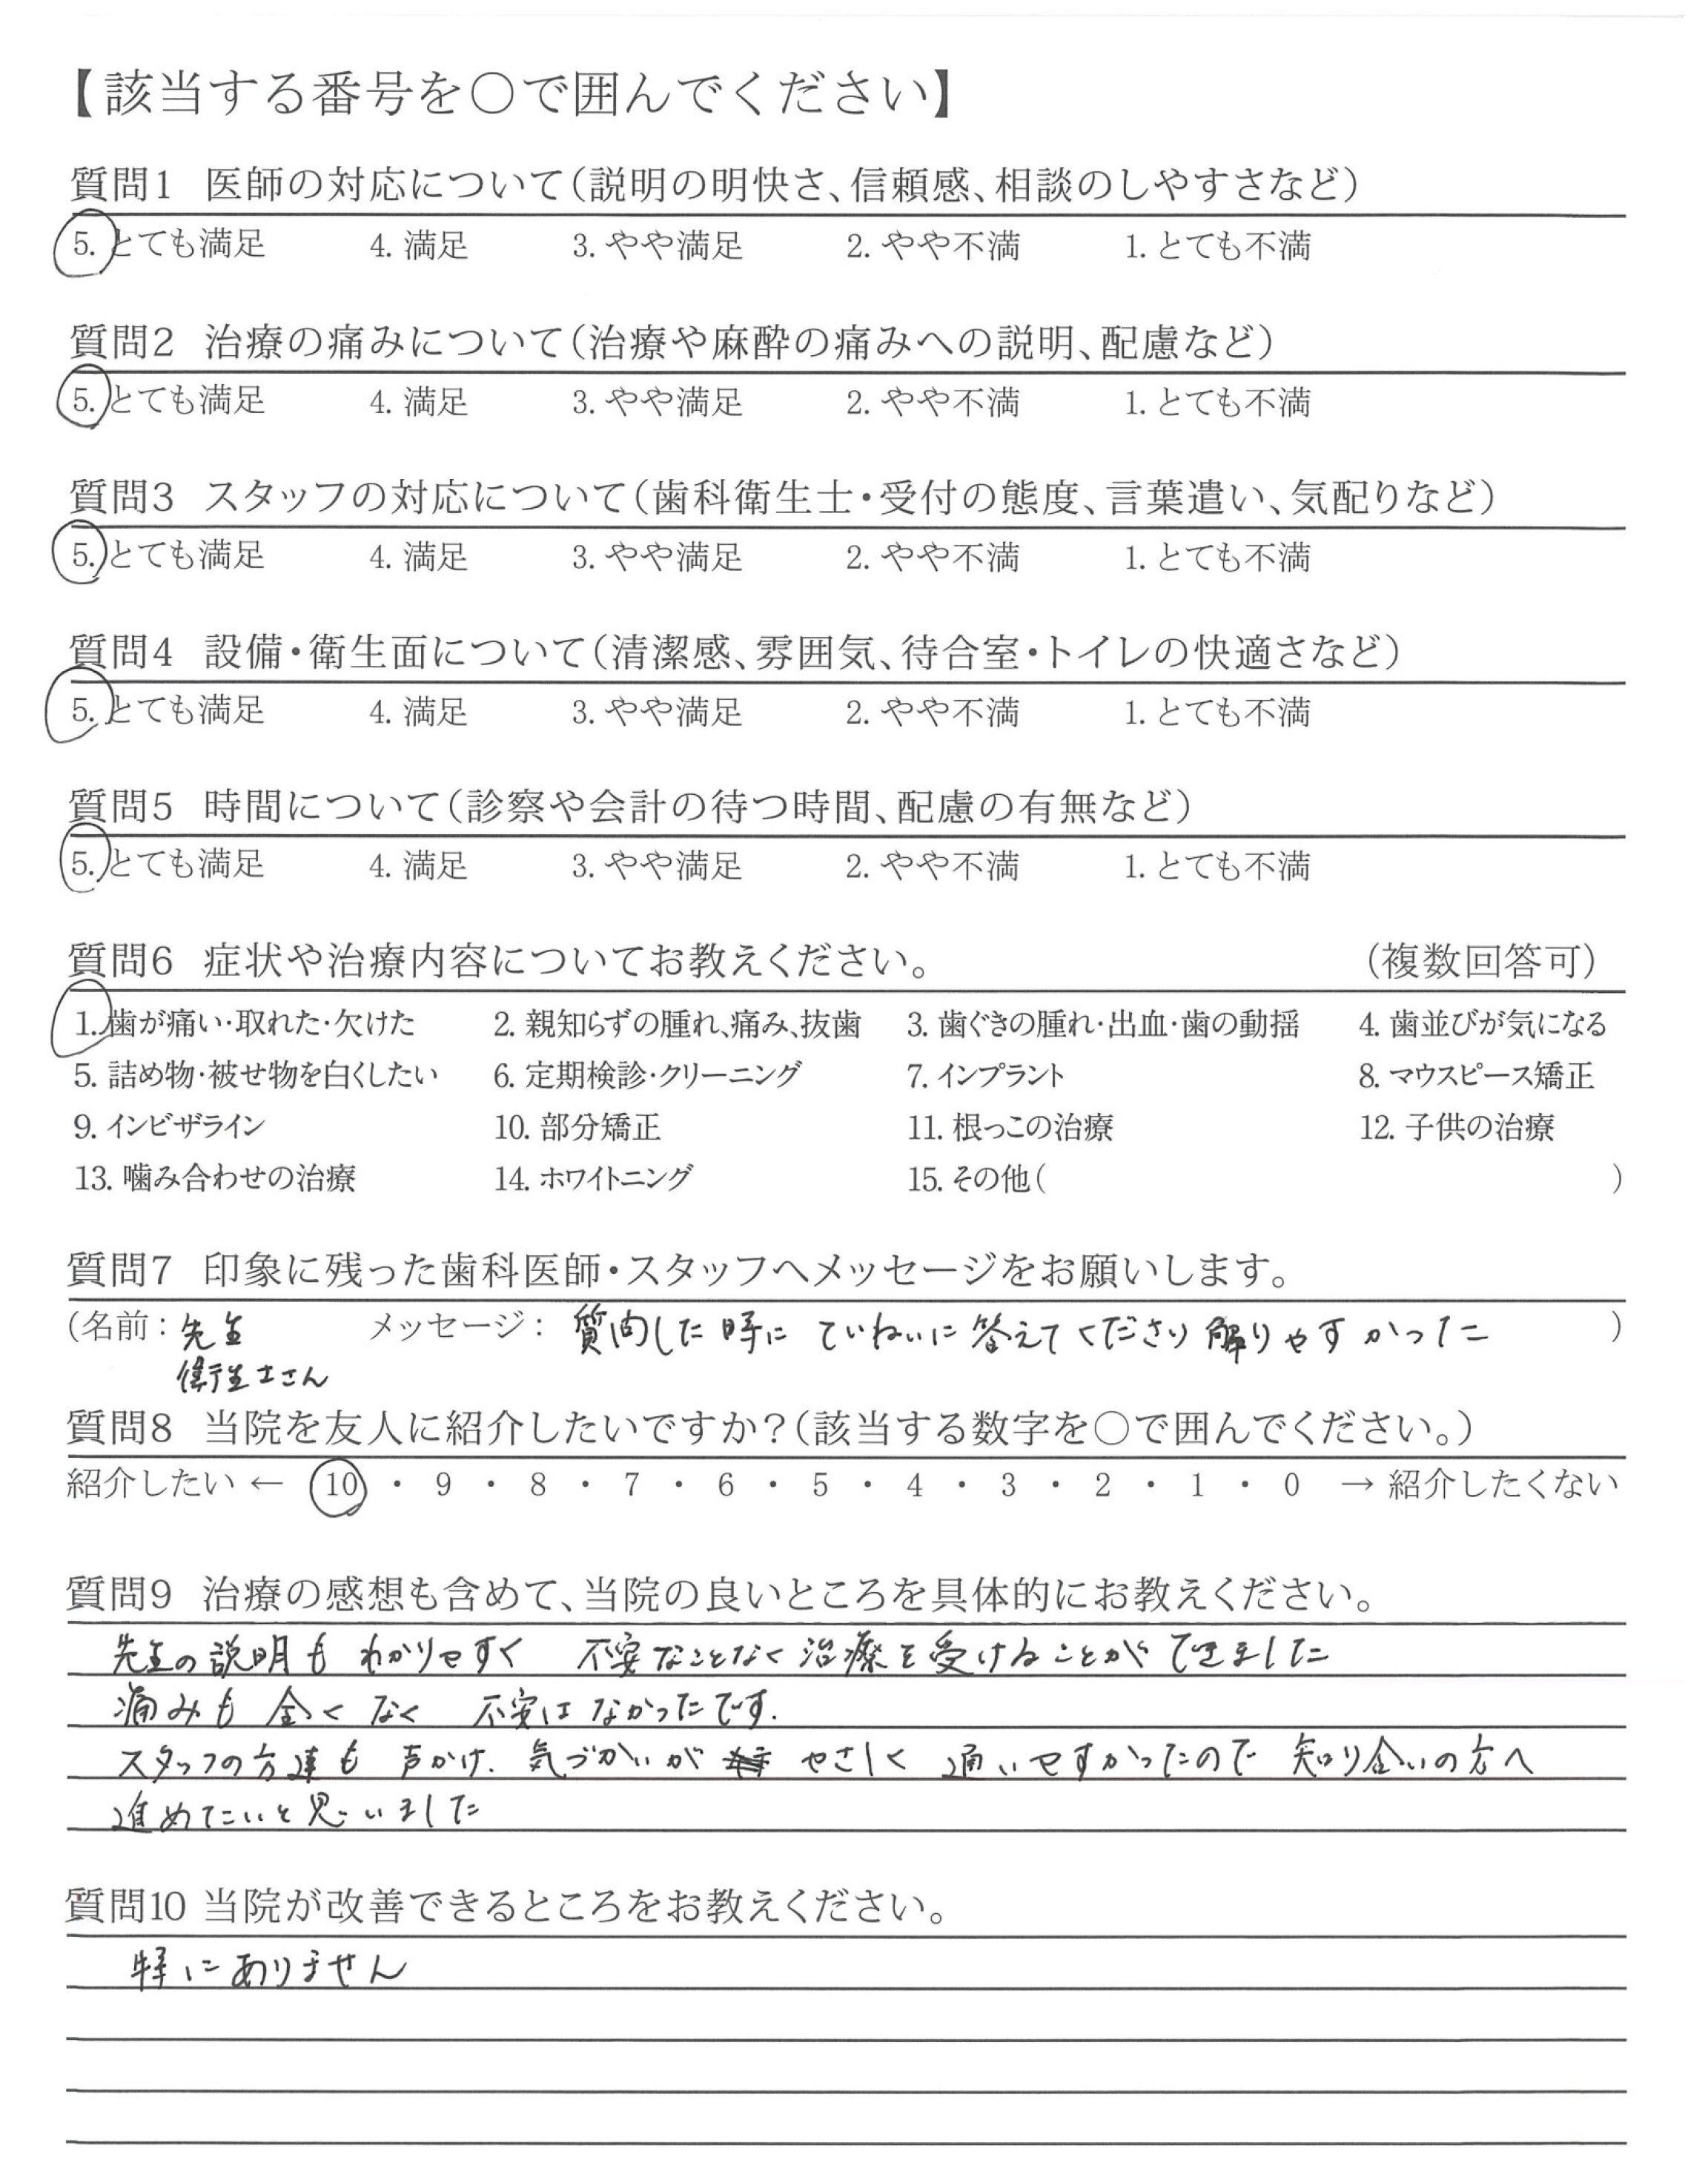 【該当する番号を〇で囲んでください】
質問1 医師の対応について(説明の明快さ、信頼感、相談のしやすさなど)
5. とても満足 4. 満足 3. やや満足 2. やや不満 1. とても不満
質問2 治療の痛みについて(治療や麻酔の痛みへの説明、配慮など)
5. とても満足 4. 満足 3. やや満足 2. やや不満 1. とても不満
質問3 スタッフの対応について(歯科衛生士・受付の態度、言葉遣い、気配りなど)
5. とても満足 4. 満足 3. やや満足 2. やや不満 1. とても不満
質問4 設備・衛生面について(清潔感、雰囲気、待合室・トイレの快適さなど)
5. とても満足 4. 満足 3. やや満足 2. やや不満 1. とても不満
質問5 時間について(診察や会計の待つ時間、配慮の有無など)
5. とても満足 4. 満足 3. やや満足 2. やや不満 1. とても不満
質問6 症状や治療内容についてお教えください。 (複数回答可)
1. 歯が痛い・取れた・欠けた 2. 親知らずの腫れ、痛み、抜歯 3. 歯ぐきの腫れ・出血・歯の動揺 4. 歯並びが気になる
5. 詰め物・被せ物を白くしたい 6. 定期検診・クリーニング 7. インプラント 8. マウスピース矯正
9. インビザライン 10. 部分矯正 11. 根っこの治療 12. 子供の治療
13. 噛み合わせの治療 14. ホワイトニング 15. その他( )
質問7 印象に残った歯科医師・スタッフへメッセージをお願いします。
(名前：先生 メッセージ：質問した時に ていねいに 答えてくださり 解りやすかった )
衛生士さん
質問8 当院を友人に紹介したいですか？(該当する数字を〇で囲んでください。)
紹介したい ← 10 ・ 9 ・ 8 ・ 7 ・ 6 ・ 5 ・ 4 ・ 3 ・ 2 ・ 1 ・ 0 → 紹介したくない
質問9 治療の感想も含めて、当院の良いところを具体的にお教えください。
先生の説明も わかりやすく 不安なことなく 治療を受けることができました
痛みも 全く なく 不安は なかったです.
スタッフの方達も 声かけ. 気づかいが やさしく 通いやすかったので 知り合いの方へ
進めたいと思いました
質問10 当院が改善できるところをお教えください。
特にありません